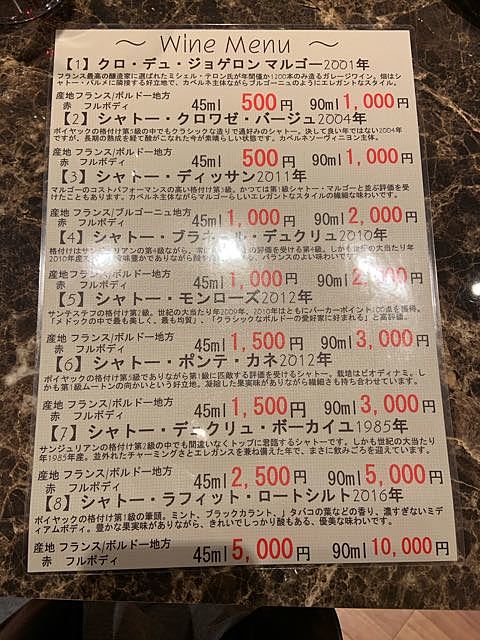 ～ Wine Menu ～
【1】クロ・デュ・ジョゲロン マルゴー2001年
フランス最高の醸造家に選ばれたミシェル・テロン氏が年間僅か1200本のみ造るガレージワイン。畑はシ
ャトー・パルメに隣接する好立地で、カベルネ主体ながらブルゴーニュのようにエレガントなスタイル。
産地 フランス/ボルドー地方
赤 フルボディ 45ml 500円 90ml 1,000円
【2】シャトー・クロワゼ・バージュ2004年
ポイヤックの格付け第5級の中でもクラシックな造りで通好みのシャトー。決して良い年ではない2004年
ですが、長期の熟成を経て酸がこなれた今が素晴らしい状態です。カベルネソーヴィニヨン主体。
産地 フランス/ボルドー地方
赤 フルボディ 45ml 500円 90ml 1,000円
【3】シャトー・ディッサン2011年
マルゴーのコストパフォーマンスの高い格付け第3級。かつては第1級シャトー・マルゴーと並ぶ評価を受
けたこともあります。カベルネ主体ながらマルゴーらしいエレガントなスタイルの繊細な味わいです。
産地 フランス/ブルゴーニュ地方
赤 フルボディ 45ml 1,000円 90ml 2,000円
【4】シャトー・ブラ デュクリュ2010年
格付けはサンジュリアンの第4級ながら、常に 上の評価を受ける第4級。しかも世紀の大当たり年
2010年産で 味豊かでありながら酸 、バランスのよい味わいで
産地 フランス/ボルドー地方
赤 フルボディ 45ml 1,000円 90ml 2, 円
【5】シャトー・モンローズ2012年
サンテステフの格付け第2級。世紀の大当たり年2009年、2010年はともにパーカーポイント100点を獲得。
「メドックの中で最も美しく、最も均質」、「クラシックなボルドーの愛好家に好まれる」と高評価。
産地 フランス/ボルドー地方
赤 フルボディ 45ml 1,500円 90ml 3,000円
【6】シャトー・ポンテ・カネ2012年
ポイヤックの格付け第5級でありながら第1級に匹敵する評価を受けるシャトー。栽培はビオディナミ。し
かも第1級ムートンの向かいという好立地。凝縮した果実味がありながら繊細さも持ち合わせています。
産地 フランス/ボルドー地方
赤 フルボディ 45ml 1,500円 90ml 3,000円
【7】シャトー・デュクリュ・ボーカイユ1985年
サンジュリアンの格付け第2級の中でも間違いなくトップに君臨するシャトーです。しかも世紀の大当た
り年1985年産。並外れたチャーミングさとエレガンスを兼ね備えた年で、まさに飲みごろを迎えています。
産地 フランス/ボルドー地方
赤 フルボディ 45ml 2,500円 90ml 5,000円
【8】シャトー・ラフィット・ロートシルト2016年
ポイヤックの格付け第1級の筆頭。ミント、ブラックカラント、タバコの葉などの香り、濃すぎないミディ
アムボディ。豊かな果実味がありながら、きれいでしっかり酸もある、優美な味わいです。
産地 フランス/ボルドー地方
赤 フルボディ 45ml 5,000円 90ml 10,000円